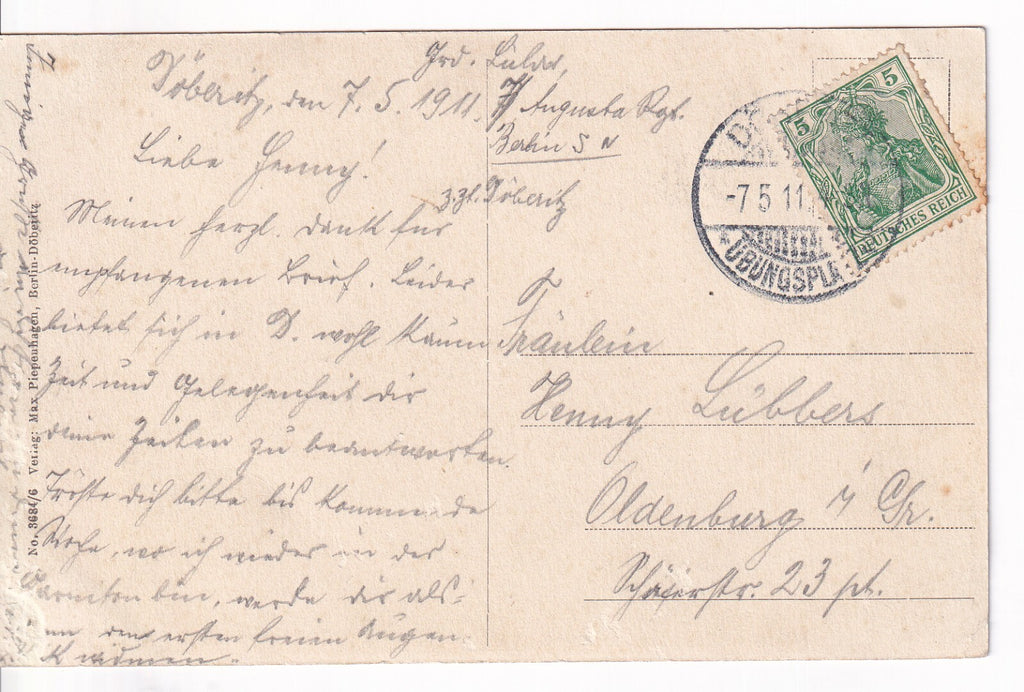 Döberitz, den 7.5.1911.
Liebe Henny!
Meinen herzl. Dank für
empfangenen Brief. Leider
bietet sich in D. wohl kaum
Zeit und Gelegenheit dir
deine Zeilen zu beantworten.
Tröste dich bitte bis kommende
Woche, wo ich wieder in der
Garnison bin, werde dir als-
den ersten freien Augen-
widmen.
Grd. Lülder,
7/ Augusta Rgt.
Berlin S W
z.Zt. Döberitz
Fräulein
Henny Lübbers
Oldenburg i/ Gr.
Schäferstr. 23 pt.
5
5
DEUTSCHES REICH
DÖ
-7 5 11
ÜBUNGSPLA
No. 3684/6 Verlag: Max Piepenhagen, Berlin-Döberitz